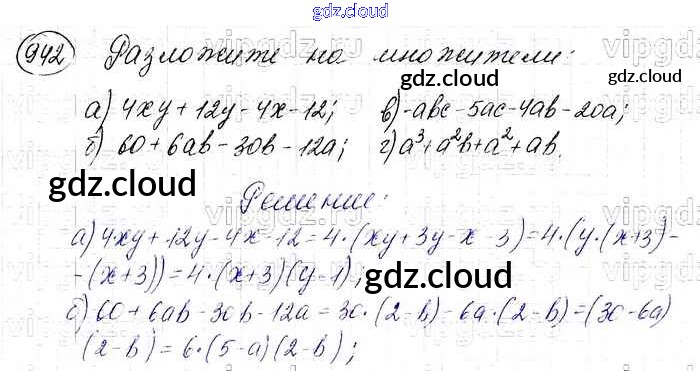 gdz.cloud
942 Разложите на множители:
gdz.cloud gdz.cloud
а) 4xy + 12y - 4x - 12; в) -abc - 5ac - 4ab - 20a;
б) 60 + 6ab - 30b - 12a; г) a³ + a²b + a² + ab.
gdz.cloud
Решение:
gdz.cloud
а) 4xy + 12y - 4x - 12 = 4·(xy + 3y - x - 3) = 4·(y·(x+3) -
- (x+3)) = 4·(x+3)(y-1);
gdz.cloud
б) 60 + 6ab - 30b - 12a = 30·(2-b) - 6a·(2-b) = (30-6a)
(2-b) = 6·(5-a)(2-b);
gdz.cloud